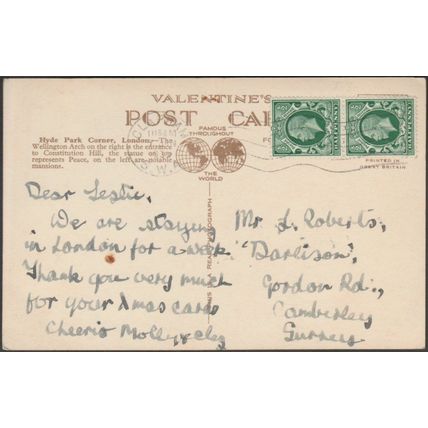 VALENTINE'S
POST CA
FAMOUS
THROUGHOUT
THE
WORLD
Hyde Park Corner, London.—The
Wellington Arch on the right is the entrance
to Constitution Hill, the statue on top
represents Peace, on the left are notable
mansions.
PRINTED IN
GREAT BRITAIN
Dear Leslie,
We are staying
in London for a week
Thank you very much
for your Xmas card
Cheerio Molly
Mr L. Roberts,
'Darlison',
Gordon Rd.,
Camberley
Surrey